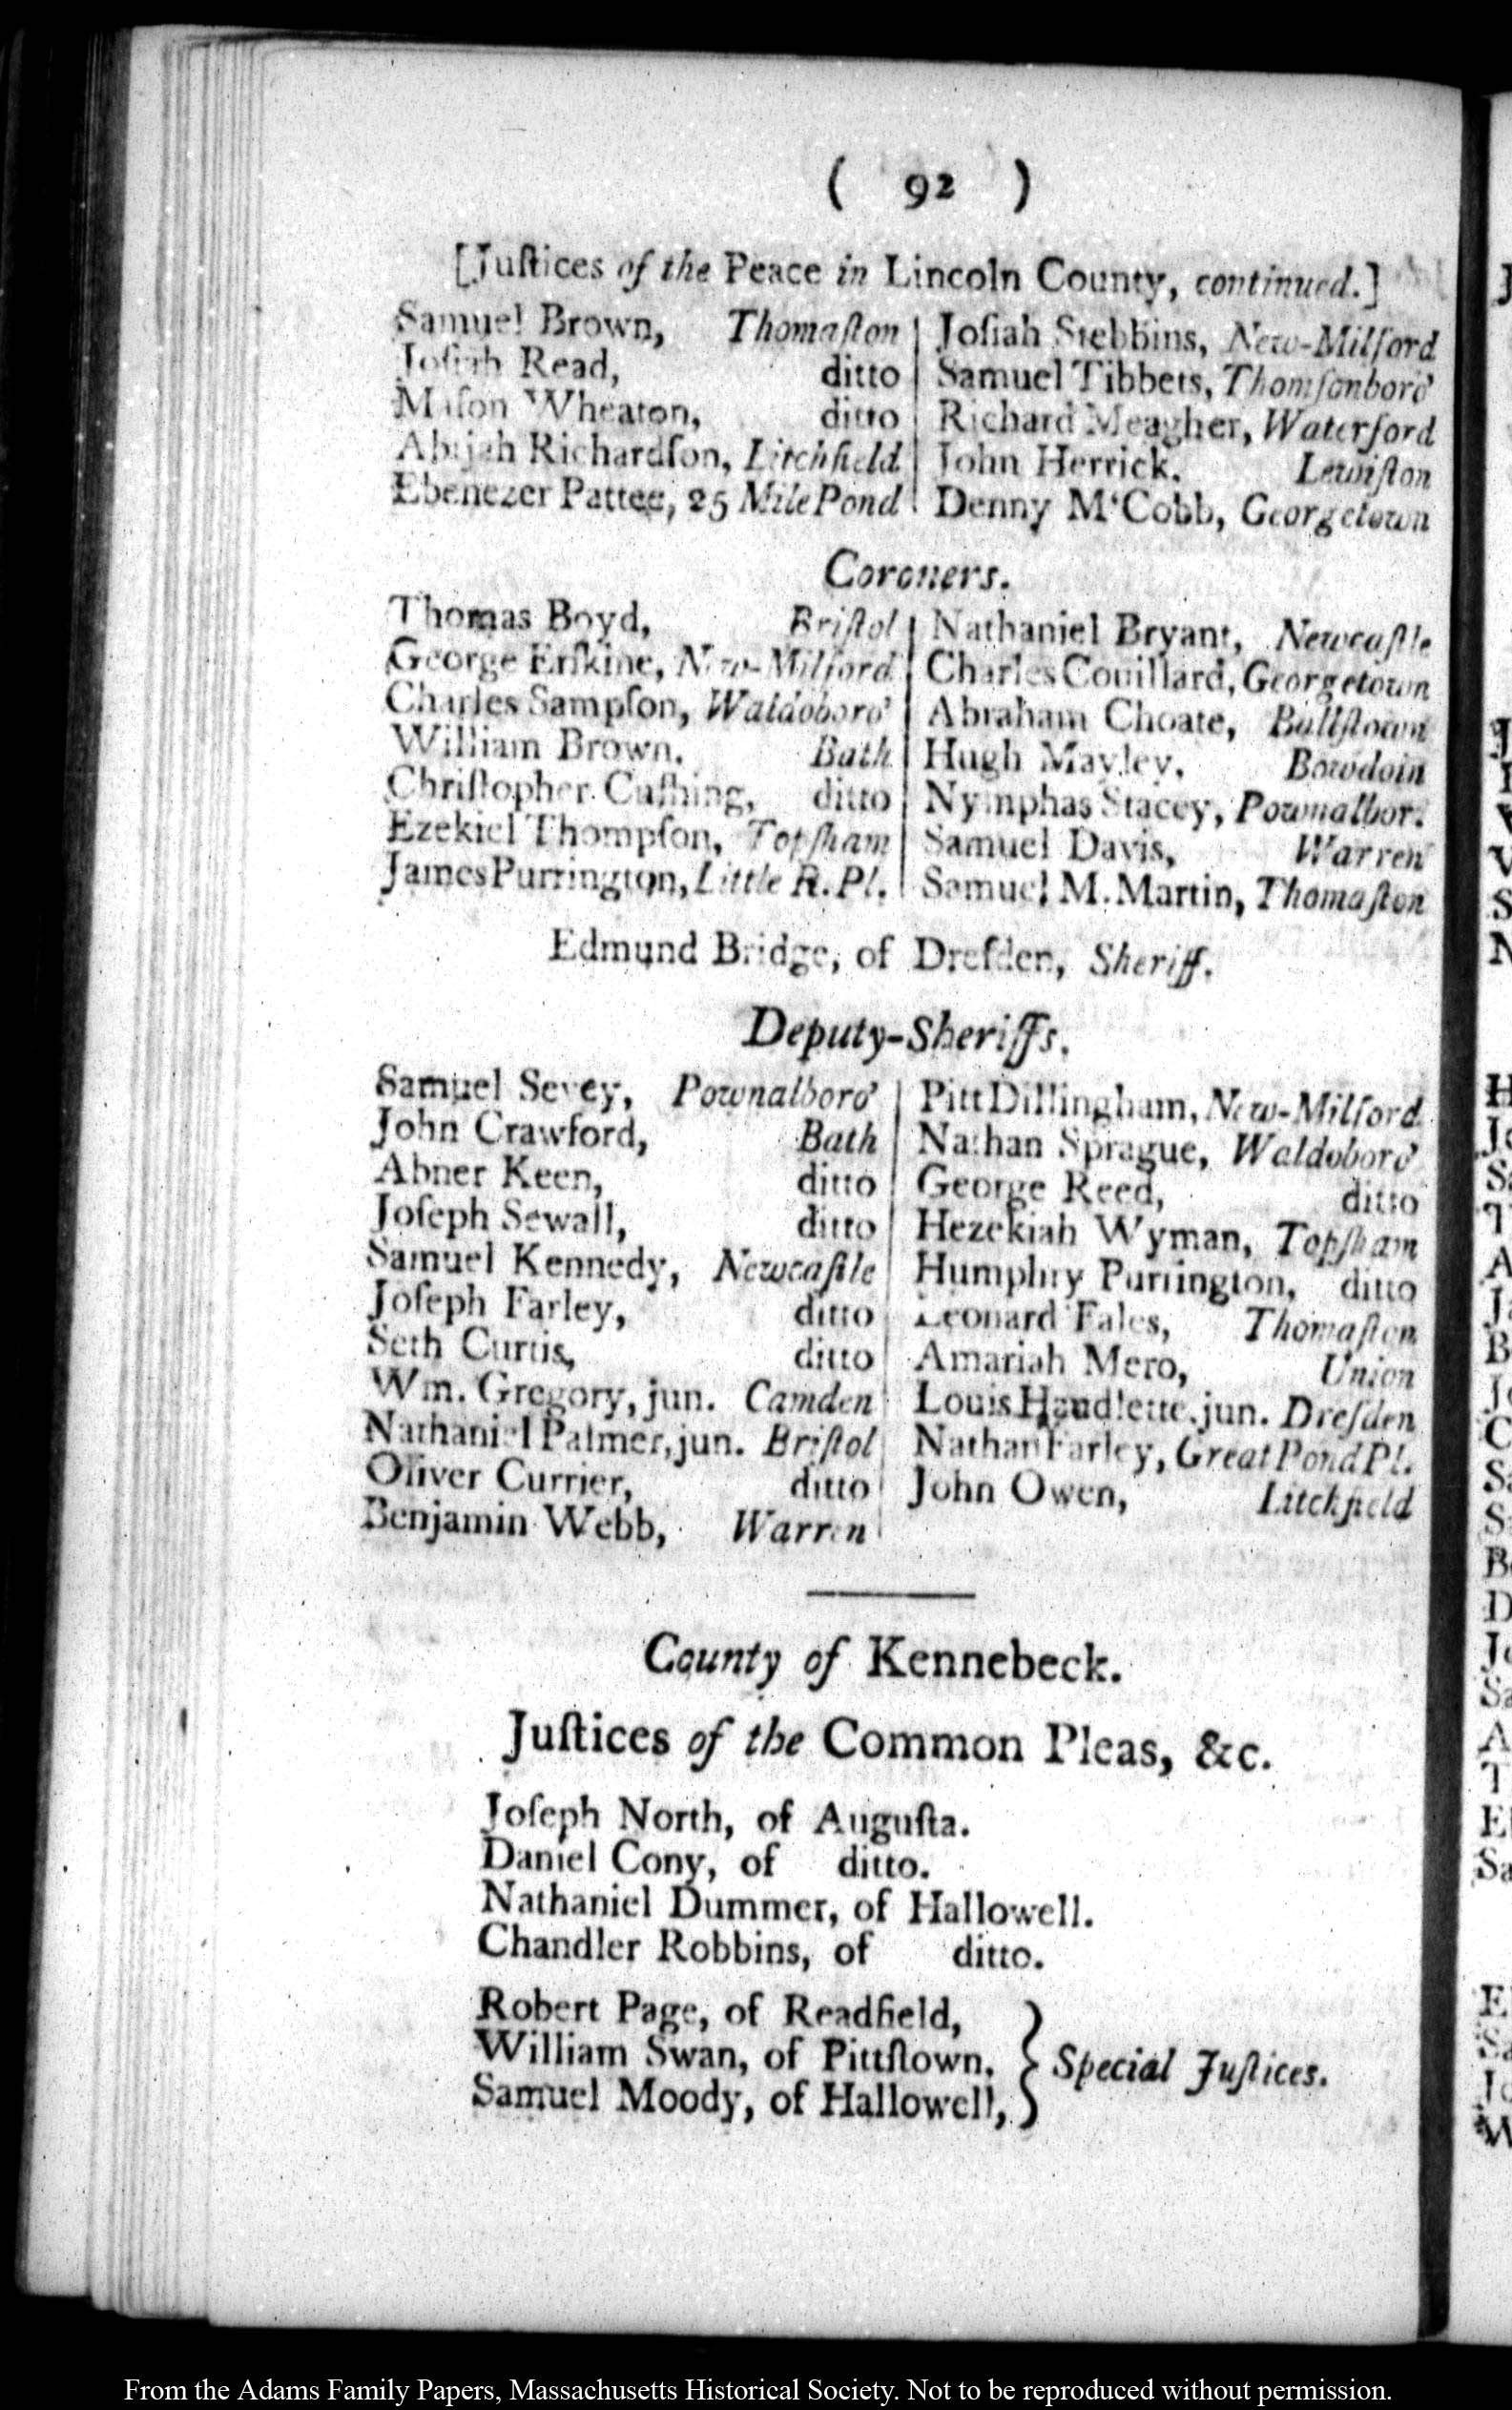 ( 92 )
[Juſtices of the Peace in Lincoln County, continued.]
Samuel Brown, Thomaſton
Joſiah Read, ditto
Maſon Wheaton, ditto
Abijah Richardſon, Litchfield
Ebenezer Pattee, 25 Mile Pond
Joſiah Stebbins, New-Milford
Samuel Tibbets, Thomſonboro'
Richard Meagher, Waterford
John Herrick, Lewiſton
Denny M'Cobb, Georgetown
Coroners.
Thomas Boyd, Briſtol
George Erſkine, New-Milford
Charles Sampſon, Waldoboro'
William Brown, Bath
Chriſtopher Cuſhing, ditto
Ezekiel Thompſon, Topſham
James Purrington, Little R. Pl.
Nathaniel Bryant, Newcaſtle
Charles Couillard, Georgetown
Abraham Choate, Ballſtown
Hugh Bowdoin
Nymphas Stacey, Pownalbor.
Samuel Davis, Warren
Samuel M. Martin, Thomaſton
Edmund Bridge, of Dreſden, Sheriff.
Deputy-Sheriffs.
Samuel Sevey, Pownalboro'
John Crawford, Bath
Abner Keen, ditto
Joſeph Sewall, ditto
Samuel Kennedy, Newcaſtle
Joſeph Farley, ditto
Seth Curtis, ditto
Wm. Gregory, jun. Camden
Nathaniel Palmer, jun. Briſtol
Oliver Currier, ditto
Benjamin Webb, Warren
Pitt Dillingham, New-Milford
Nathan Sprague, Waldoboro'
George Reed, ditto
Hezekiah Wyman, Topſham
Humphry Purrington, ditto
Leonard Fales, Thomaſton
Amariah Mero, Union
Louis Houdlette, jun. Dreſden
Nathan Farley, Great Pond Pl.
John Owen, Litchfield
County of Kennebeck.
Juſtices of the Common Pleas, &c.
Joſeph North, of Auguſta.
Daniel Cony, of ditto.
Nathaniel Dummer, of Hallowell.
Chandler Robbins, of ditto.
Robert Page, of Readfield,
William Swan, of Pittſtown,
Samuel Moody, of Hallowell,
} Special Juſtices.
From the Adams Family Papers, Massachusetts Historical Society. Not to be reproduced without permission.